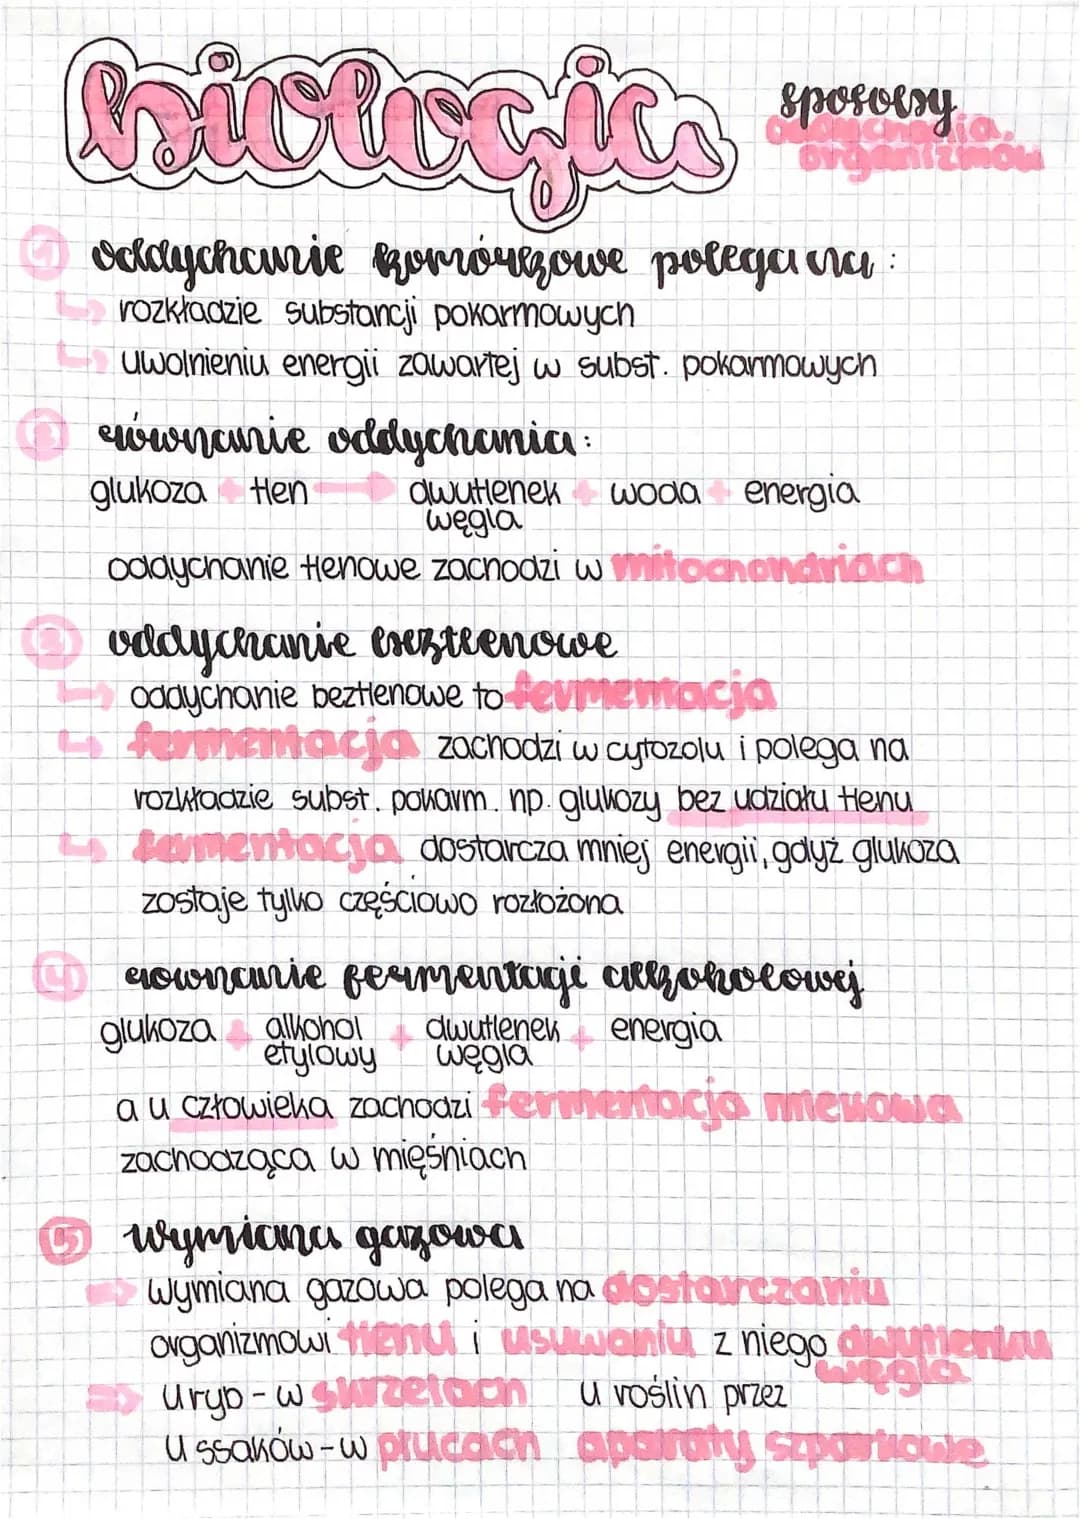 biologia
sposoby
oddychania
organizmów
1 oddychanie komórkowe polega na:
rozkładzie substancji pokarmowych
uwolnieniu energii zawartej w subst. pokarmowych
2 równanie oddychania:
glukoza + tlen → dwutlenek węgla + woda + energia
oddychanie tlenowe zachodzi w mitochondriach
3 oddychanie beztlenowe
oddychanie beztlenowe to fermentacja
fermentacja zachodzi w cytozolu i polega na
rozkładzie subst. pokarm. np. glukozy bez udziału tlenu
fermentacja dostarcza mniej energii, gdyż glukoza
zostaje tylko częściowo rozłożona
4 równanie fermentacji alkoholowej
glukoza + alkohol etylowy + dwutlenek węgla + energia
a u człowieka zachodzi fermentacja mlekowa
zachodząca w mięśniach
5 wymiana gazowa
⇒ wymiana gazowa polega na dostarczaniu
organizmowi tlenu i usuwaniu z niego dwutlenku węgla
⇒ u ryb - w skrzelach u roślin przez
u ssaków - w płucach aparaty szparkowe